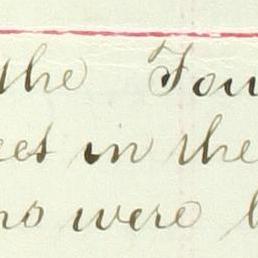 the Tow
eet in the
ns were b